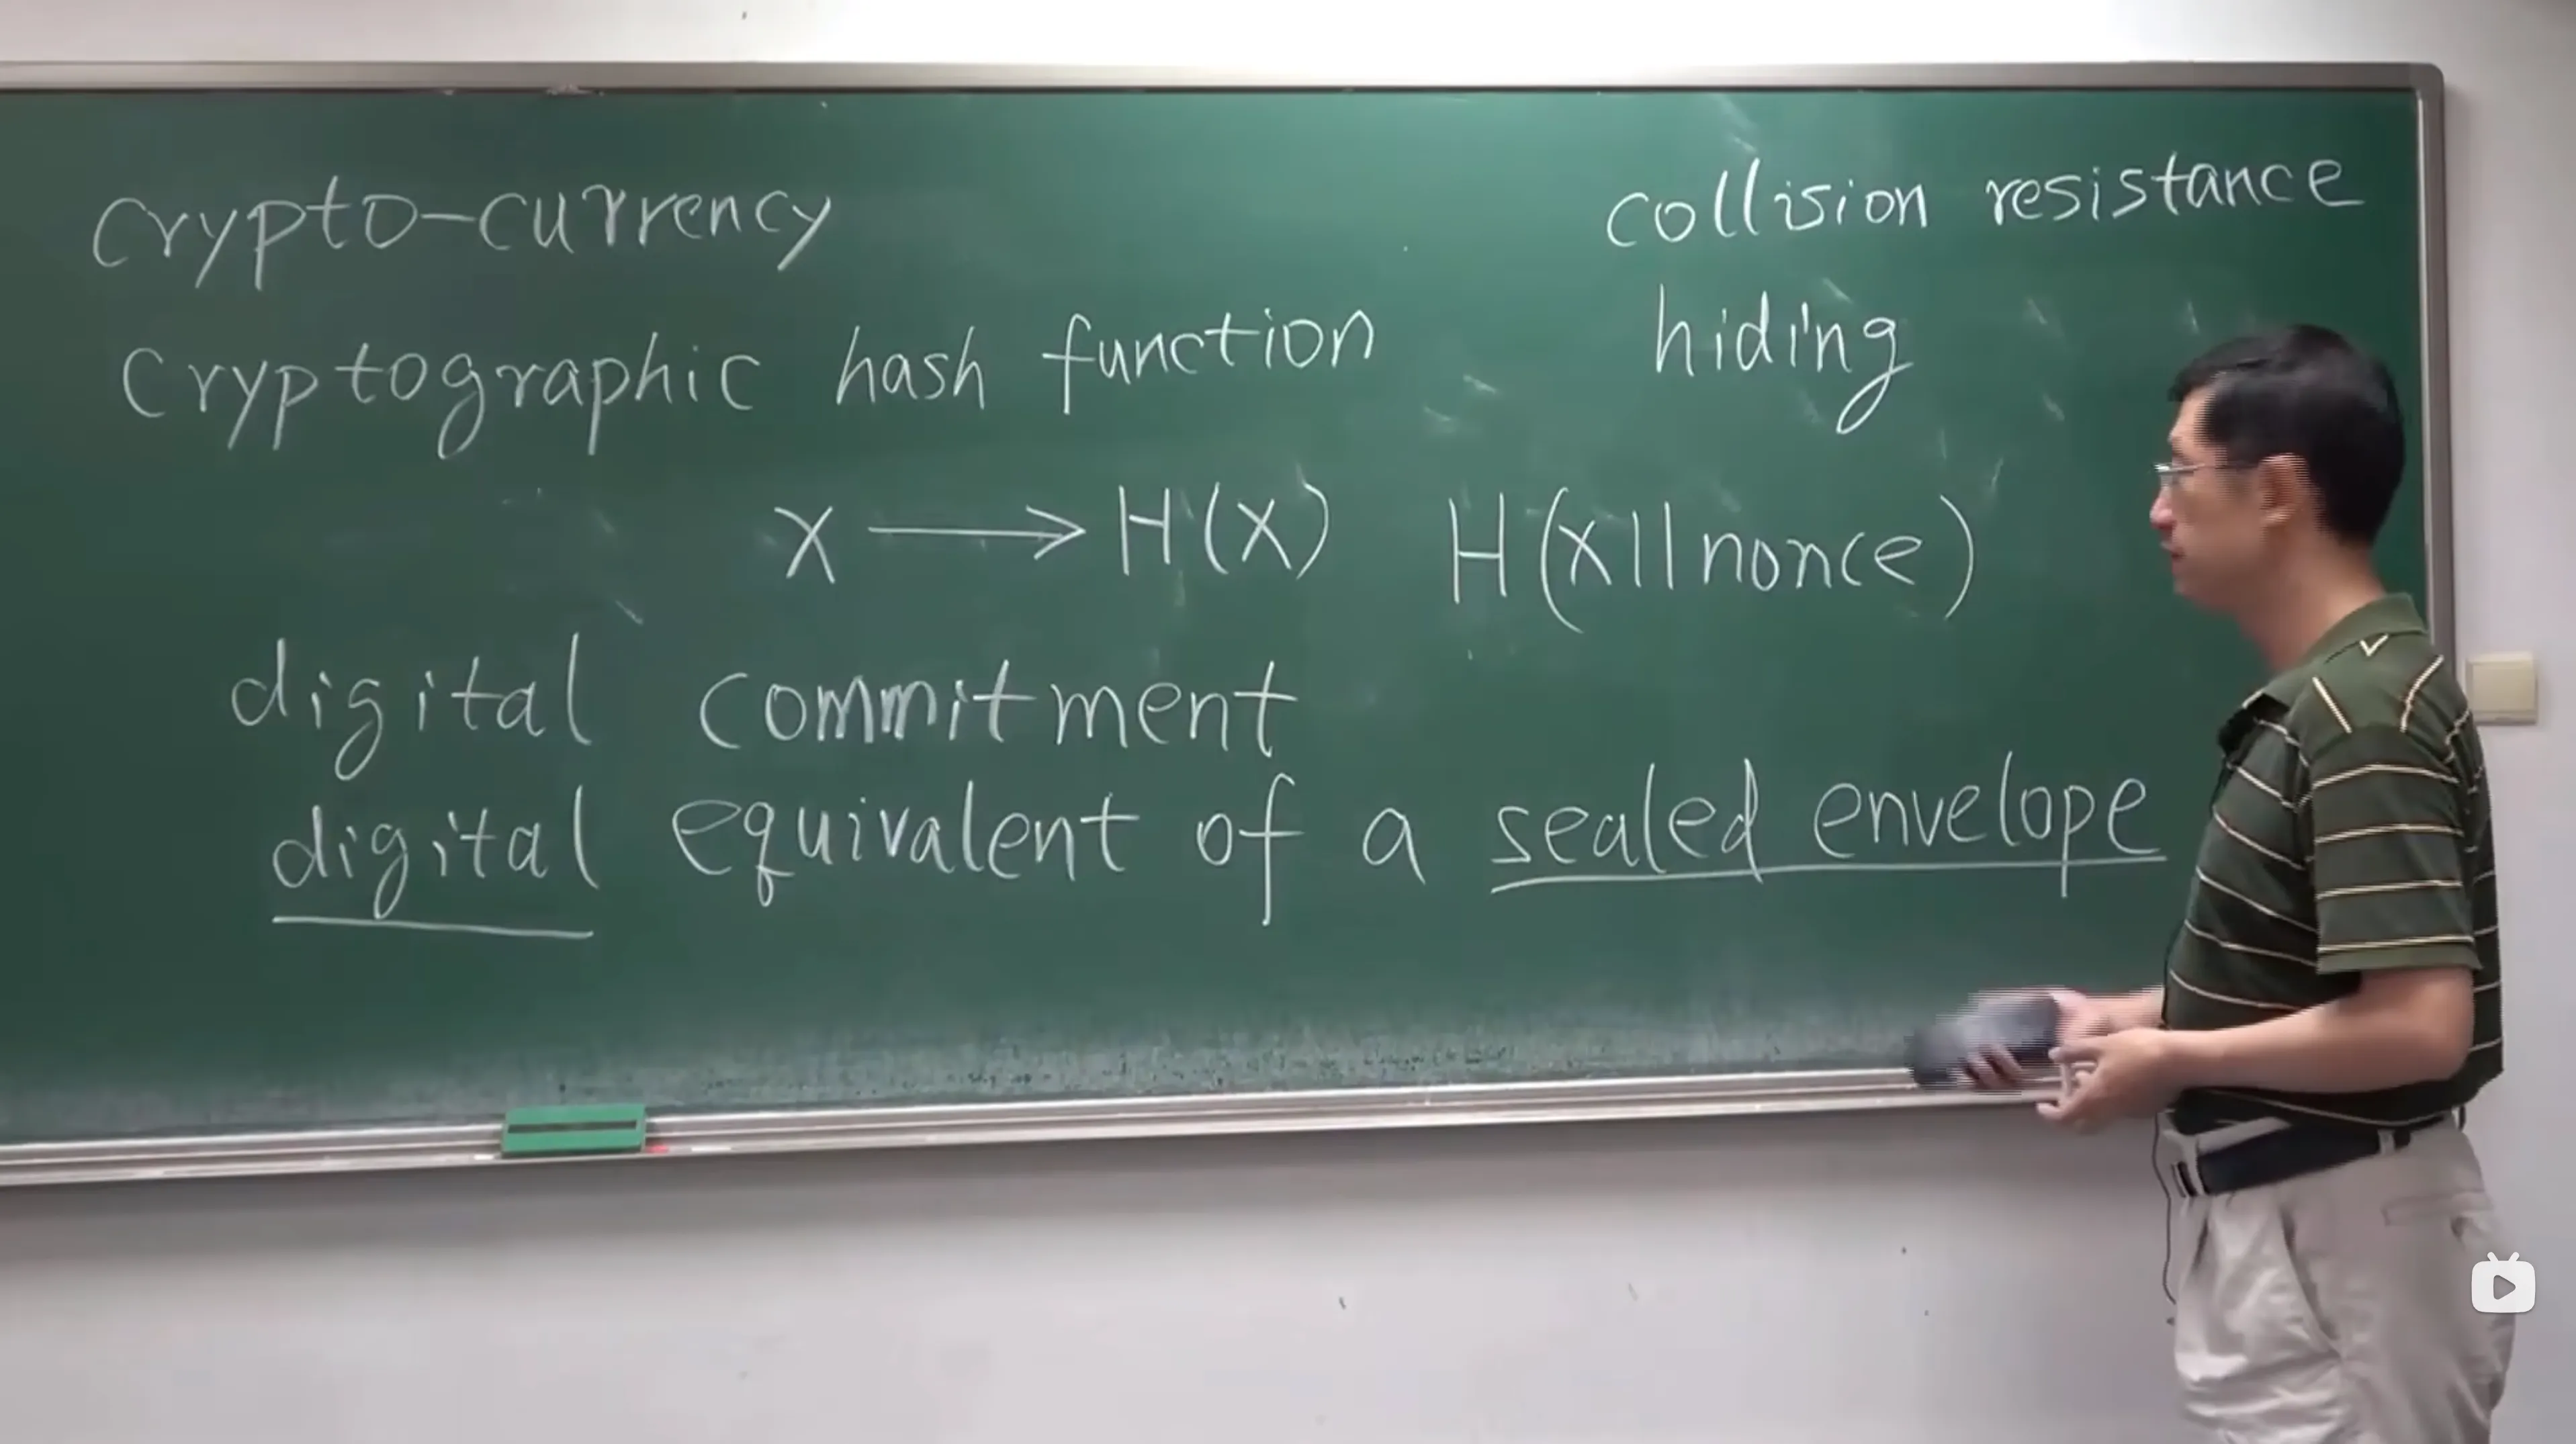 crypto-currency
collision resistance
cryptographic hash function
hiding
X → H(X)
H(X||nonce)
digital commitment
digital equivalent of a sealed envelope